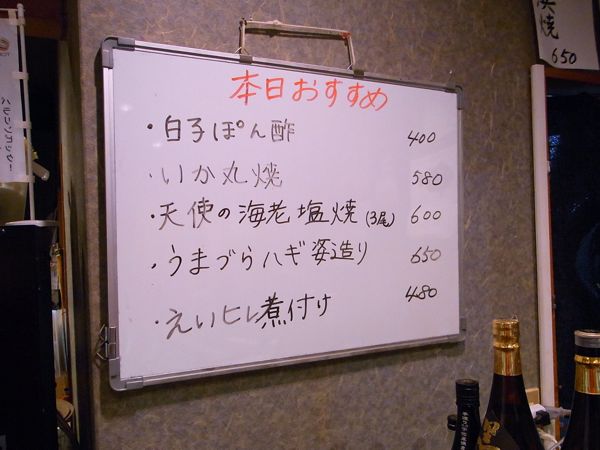 本日おすすめ
・白子ぽん酢 400
・いか丸焼 580
・天使の海老塩焼(3尾) 600
・うまづらハギ姿造り 650
・えいヒレ煮付け 480
焼
650